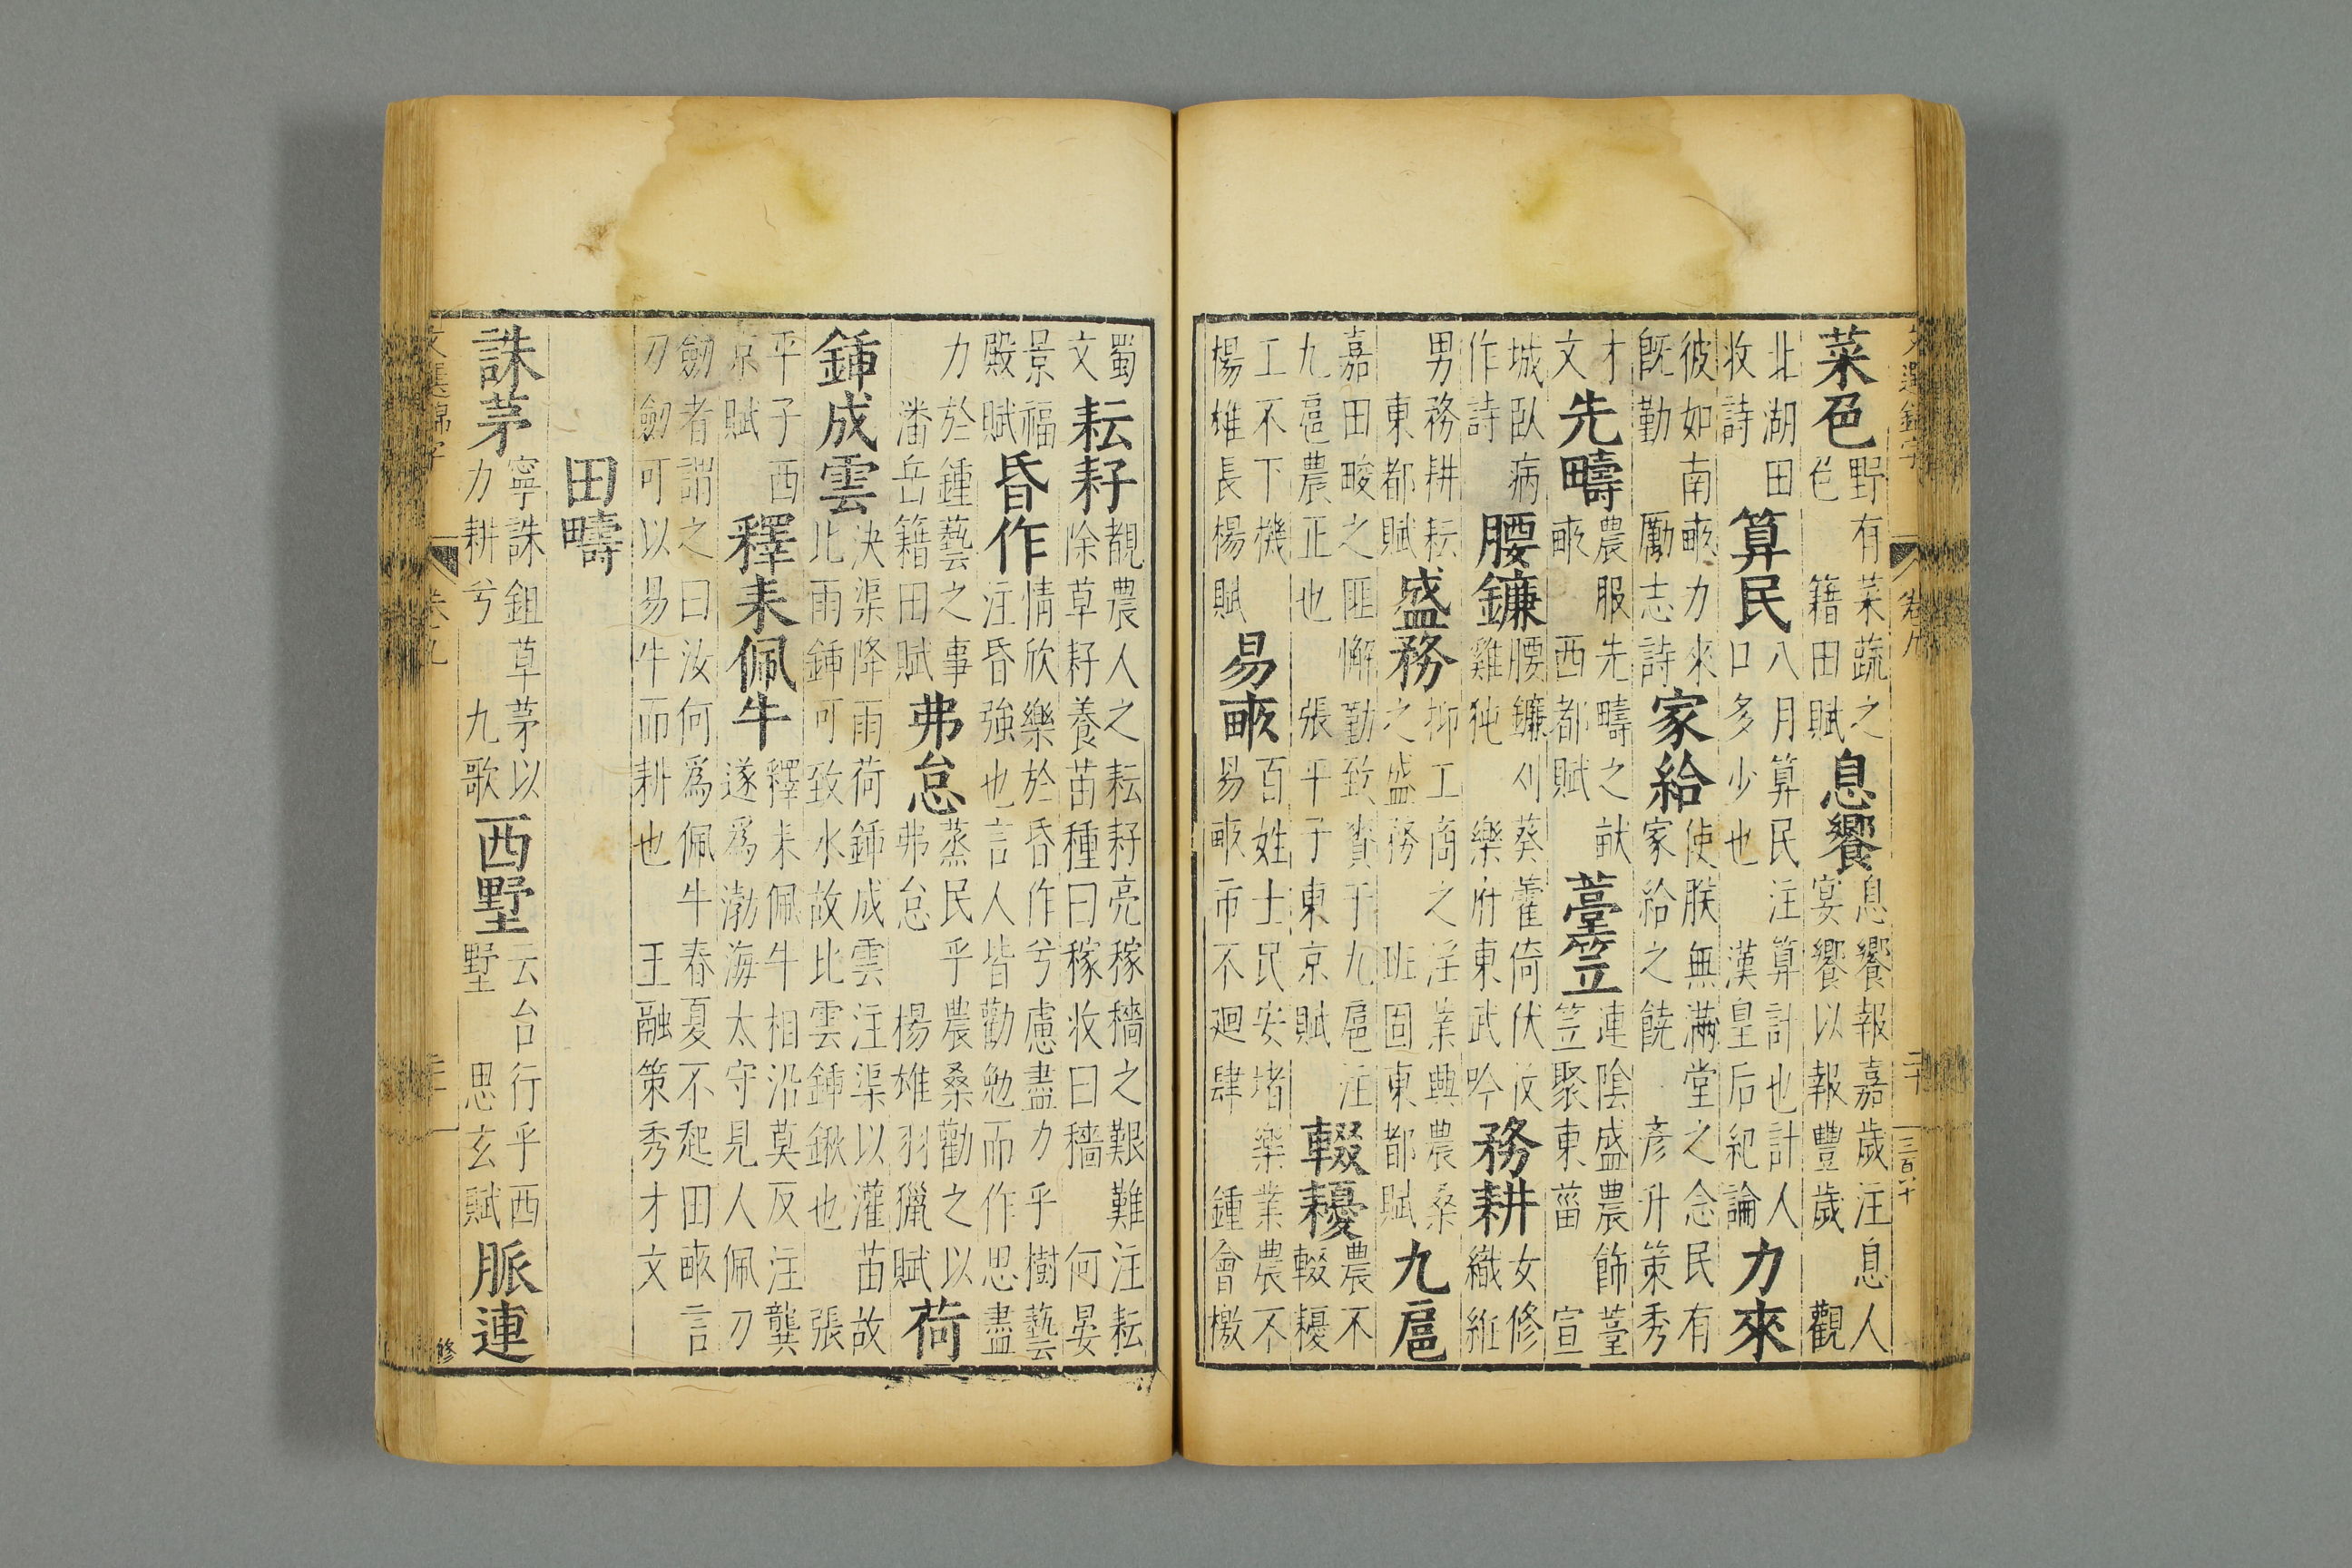 文選錦字 卷九 二十 三百八十
菜色 野有菜蔬之色 籍田賦 息饗 息饗報嘉歲注息人宴饗以報豐歲 觀
北湖田收詩 算民 八月算民注算計也計人口多少也 漢皇后紀論 力來
彼如南畝力來既勤 勵志詩 家給 使朕無滿堂之念民有家給之饒 彥升策秀
才文 先疇 農服先疇之畎畝 西都賦 薹笠 連陰盛農飾薹笠聚東菑 宣
城臥病作詩 腰鐮 腰鐮刈葵藿倚伏汝雞㹠 樂府東武吟 務耕 女修織紝
男務耕耘 東都賦 盛務 抑工商之淫業興農桑之盛務 班固東都賦 九扈
嘉田畯之匪懈勤致賚于九扈注九扈農正也 張平子東京賦 輟耰 農不輟耰
工不下機 楊雄長楊賦 易畝 百姓士民安堵樂業農不易畝市不廻肆 鍾會檄
蜀文 耘耔 覩農人之耘耔亮稼穡之艱難注耘除草耔養苗種曰稼收曰穡 何晏
景福殿賦 昏作 情欣樂於昏作兮慮盡力乎樹藝注昏強也言人皆勸勉而作思盡
力於鍾藝之事 潘岳籍田賦 弗怠 蒸民乎農桑勸之以弗怠 楊雄羽獵賦 荷
鍤成雲 決渠降雨荷鍤成雲注渠以灌苗故比雨鍤可致水故比雲鍤鍬也 張
平子西京賦 釋耒佩牛 釋耒佩牛相沿莫反注龔遂爲渤海太守見人佩刀
劒者謂之曰汝何爲佩牛春夏不起田畝言刀劒可以易牛而耕也 王融策秀才文
田疇
誅茅 寧誅鉏草茅以力耕兮 九歌 西墅 云台行乎西墅 思玄賦 脈連
文選錦字 卷九 二十一 修